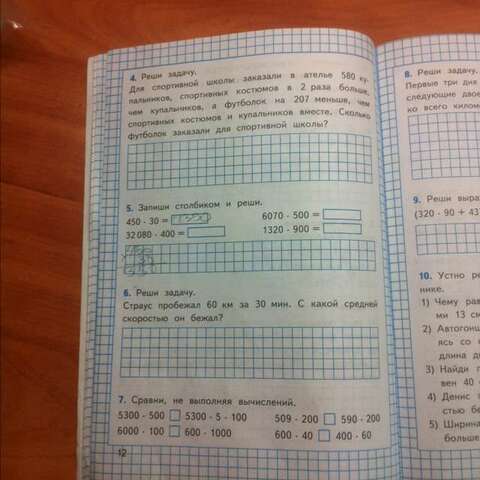 4. Реши задачу.
Для спортивной школы заказали в ателье 580 ку-
пальников, спортивных костюмов в 2 раза больше,
чем купальников, а футболок на 207 меньше, чем
спортивных костюмов и купальников вместе. Сколько
футболок заказали для спортивной школы?
5. Запиши столбиком и реши.
450 · 30 =
6070 · 500 =
32 080 · 400 =
1320 · 900 =
6. Реши задачу.
Страус пробежал 60 км за 30 мин. С какой средней
скоростью он бежал?
7. Сравни, не выполняя вычислений.
5300 · 500 5300 · 5 · 100
509 · 200 590 · 200
6000 · 100 600 · 1000
600 · 40 400 · 60
12
8. Реши задачу.
Первые три дня
следующие двое
ко всего килом
9. Реши выра
(320 · 90 + 43
10. Устно ре
нике.
1) Чему рав
ми 13 см
2) Автогонщ
ясь со с
длина д
3) Найди п
вен 40
4) Денис т
стью бе
5) Ширина
больше